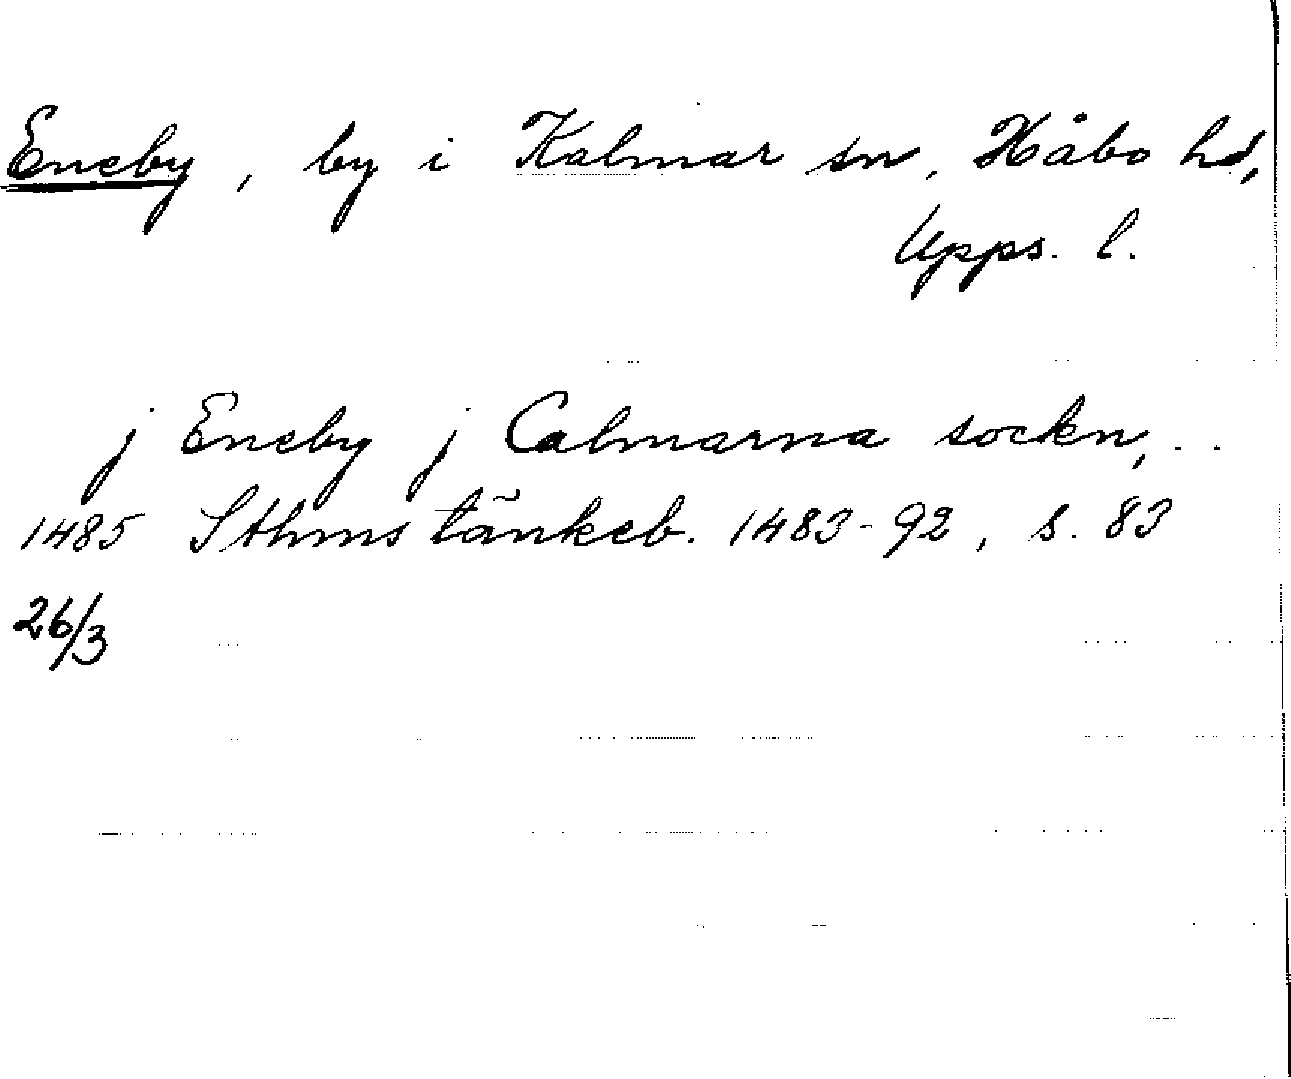 Eneby, by i Kalmar sn, Håbo hd,
Upps. l.
j Eneby j Calmarna sockn, . .
1485 Sthms tänkeb. 1483-92, s. 83
26/3